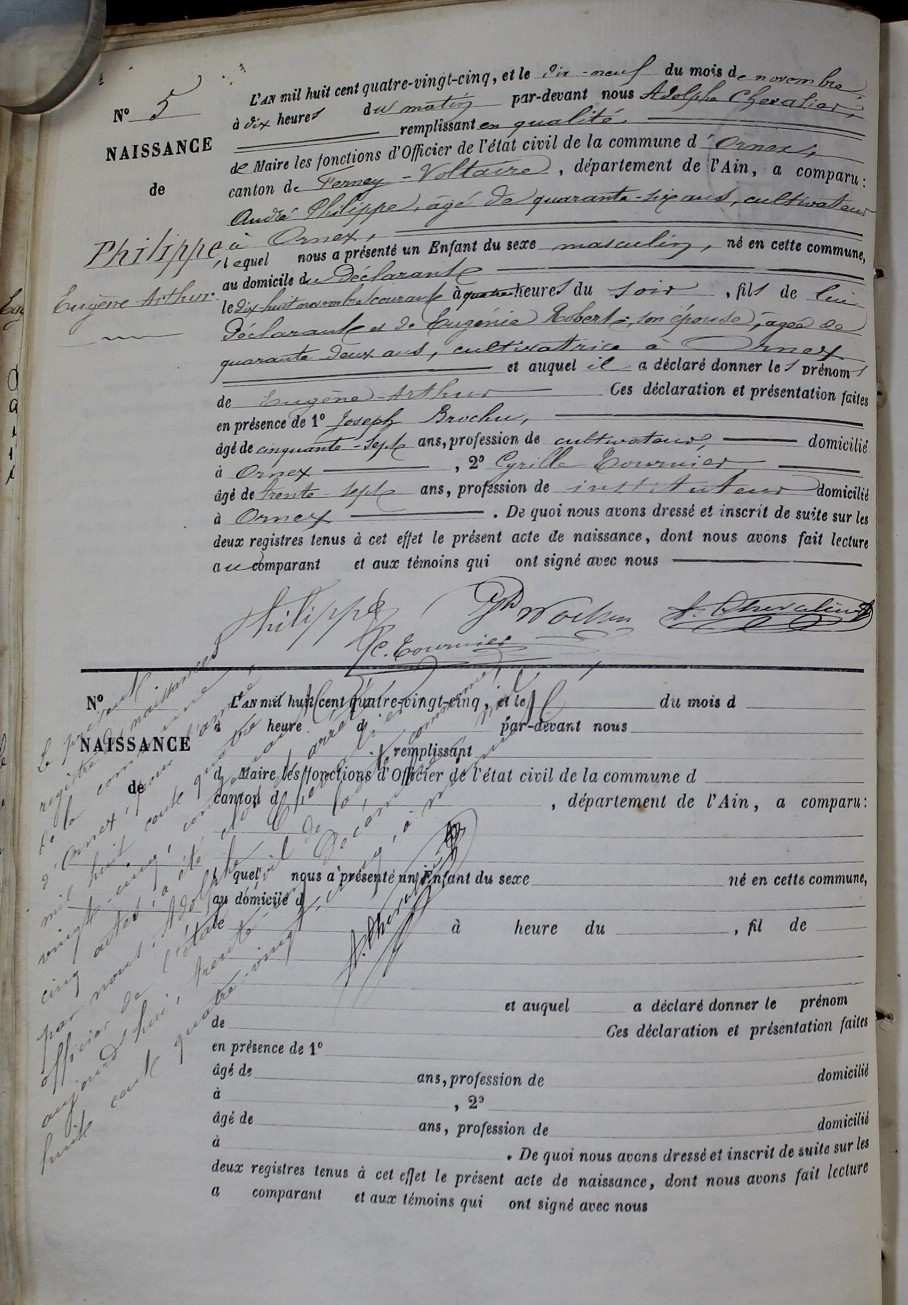 N° 5
NAISSANCE
de
Philippe,
Eugène Arthur.
L'AN mil huit cent quatre-vingt-cinq, et le dix-neuf du mois de novembre
à dix heures du matin par-devant nous Adolphe Chevalier,
remplissant en qualité
de Maire les fonctions d'Officier de l'état civil de la commune d'Ornex,
canton de Ferney-Voltaire, département de l'Ain, a comparu:
André Philippe, agé de quarante-six ans, cultivateur
à Ornex,
lequel nous a présenté un Enfant du sexe masculin, né en cette commune,
au domicile du Déclarant
le dix huit novembre courant à quatre heures du soir, fils de lui
déclarant et de Eugénie Robert, son épouse, agée de
quarante deux ans, cultivatrice à Ornex
et auquel il a déclaré donner les prénoms
de Eugène-Arthur Ces déclaration et présentation faites
en présence de 1° Joseph Brochu,
âgé de cinquante-sept ans, profession de cultivateur, domicilié
à Ornex, 2° Cyrille Tournier,
âgé de trente-sept ans, profession de instituteur domicilié
à Ornex. De quoi nous avons dressé et inscrit de suite sur les
deux registres tenus à cet effet le présent acte de naissance, dont nous avons fait lecture
au comparant et aux témoins qui ont signé avec nous
Philippe A. Chevalier
C. Tournier
N°
NAISSANCE
de
L'AN mil huit cent quatre-vingt-cinq, et le du mois d
à heure d par-devant nous
remplissant
d Maire les fonctions d'Officier de l'état civil de la commune d
canton d, département de l'Ain, a comparu:
lequel nous a présenté un Enfant du sexe né en cette commune,
au domicile d
le à heure du, fil de
et auquel a déclaré donner le prénom
de Ces déclaration et présentation faites
en présence de 1°
âgé de ans, profession de domicilié
à, 2°
âgé de ans, profession de domicilié
à. De quoi nous avons dressé et inscrit de suite sur les
deux registres tenus à cet effet le présent acte de naissance, dont nous avons fait lecture
a comparant et aux témoins qui ont signé avec nous
Le présent
registre des naissances
de la commune
d'Ornex, pour l'année
mil huit cent quatre
vingt-cinq, contenant
cinq actes, a été clos et arrêté
par nous, Adolphe Chevalier
officier de l'état civil de la dite commune,
aujourd'hui, trente un Décembre mil
huit cent quatre vingt-cinq, à
A. Chevalier